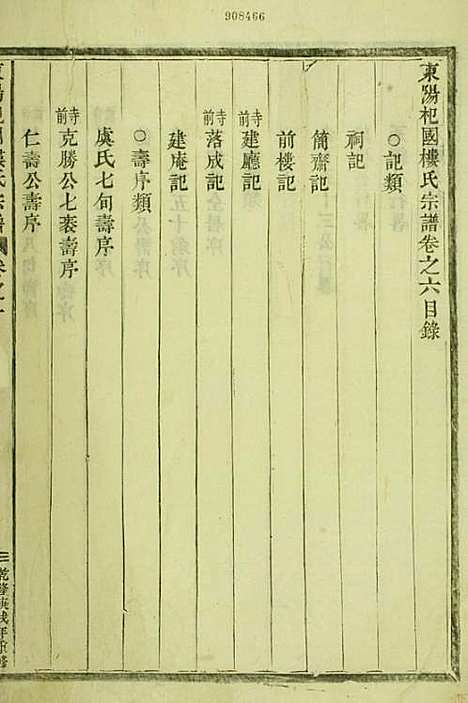 908466
東陽杞國樓氏宗譜卷之六目錄
○記類
祠記
簡齋記
前樓記
寺前建廳記
寺前落成記
建庵記
○壽序類
虞氏七旬壽序
寺前克勝公七袠壽序
仁壽公壽序
三
乾隆庚戌年重修